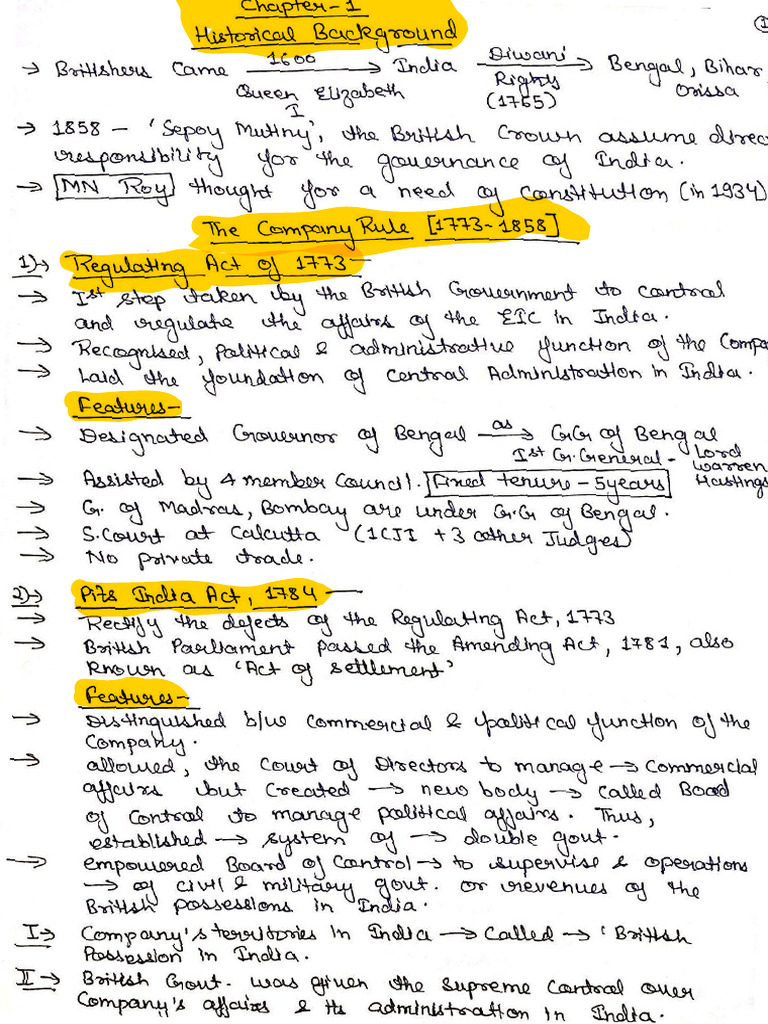 Chapter-1
Historical Background
→ Britishers Came 1600 → India Diwani → Bengal, Bihar,
Queen Elizabeth Rights Orissa
I (1765)
→ 1858 - 'Sepoy Mutiny', the British Crown assume direc
responsibility for the governance of India.
→ MN Roy thought for a need of constitution (in 1934)
The Company Rule [1773-1858]
1)→ Regulating Act of 1773 -
→ Ist step taken by the British Government to control
and regulate the affairs of the EIC in India.
→ Recognised, political & administrative function of the Compa
→ Laid the foundation of central Administration in India.
Features-
→ Designated Governor of Bengal as → G.G of Bengal
Ist G. General - Lord
Warren
Hastings
→ Assisted by 4 member Council. Fixed tenure - 5years
→ G. of Madras, Bombay are under G.G of Bengal.
→ S.Court at Calcutta (1CJI + 3 other Judges)
→ No private trade.
2)→ Pits India Act, 1784 -
→ Rectify the defects of the Regulating Act, 1773
→ British Parliament passed the Amending Act, 1781, also
known as 'Act of Settlement'
Features-
→ Distinguished b/w commercial & political function of the
Company.
→ allowed, the Court of Directors to manage → Commercial
affairs but created → new body → called Board
of control to manage political affairs. Thus,
established → system of → double govt.
→ empowered Board of Control → to supervise & operations
→ of civil & military govt. or revenues of the
British possessions in India.
I→ Company's territories in India → Called → 'British
Possession in India.
II→ British Govt. was given the supreme control over
Company's affairs & its administration in India.